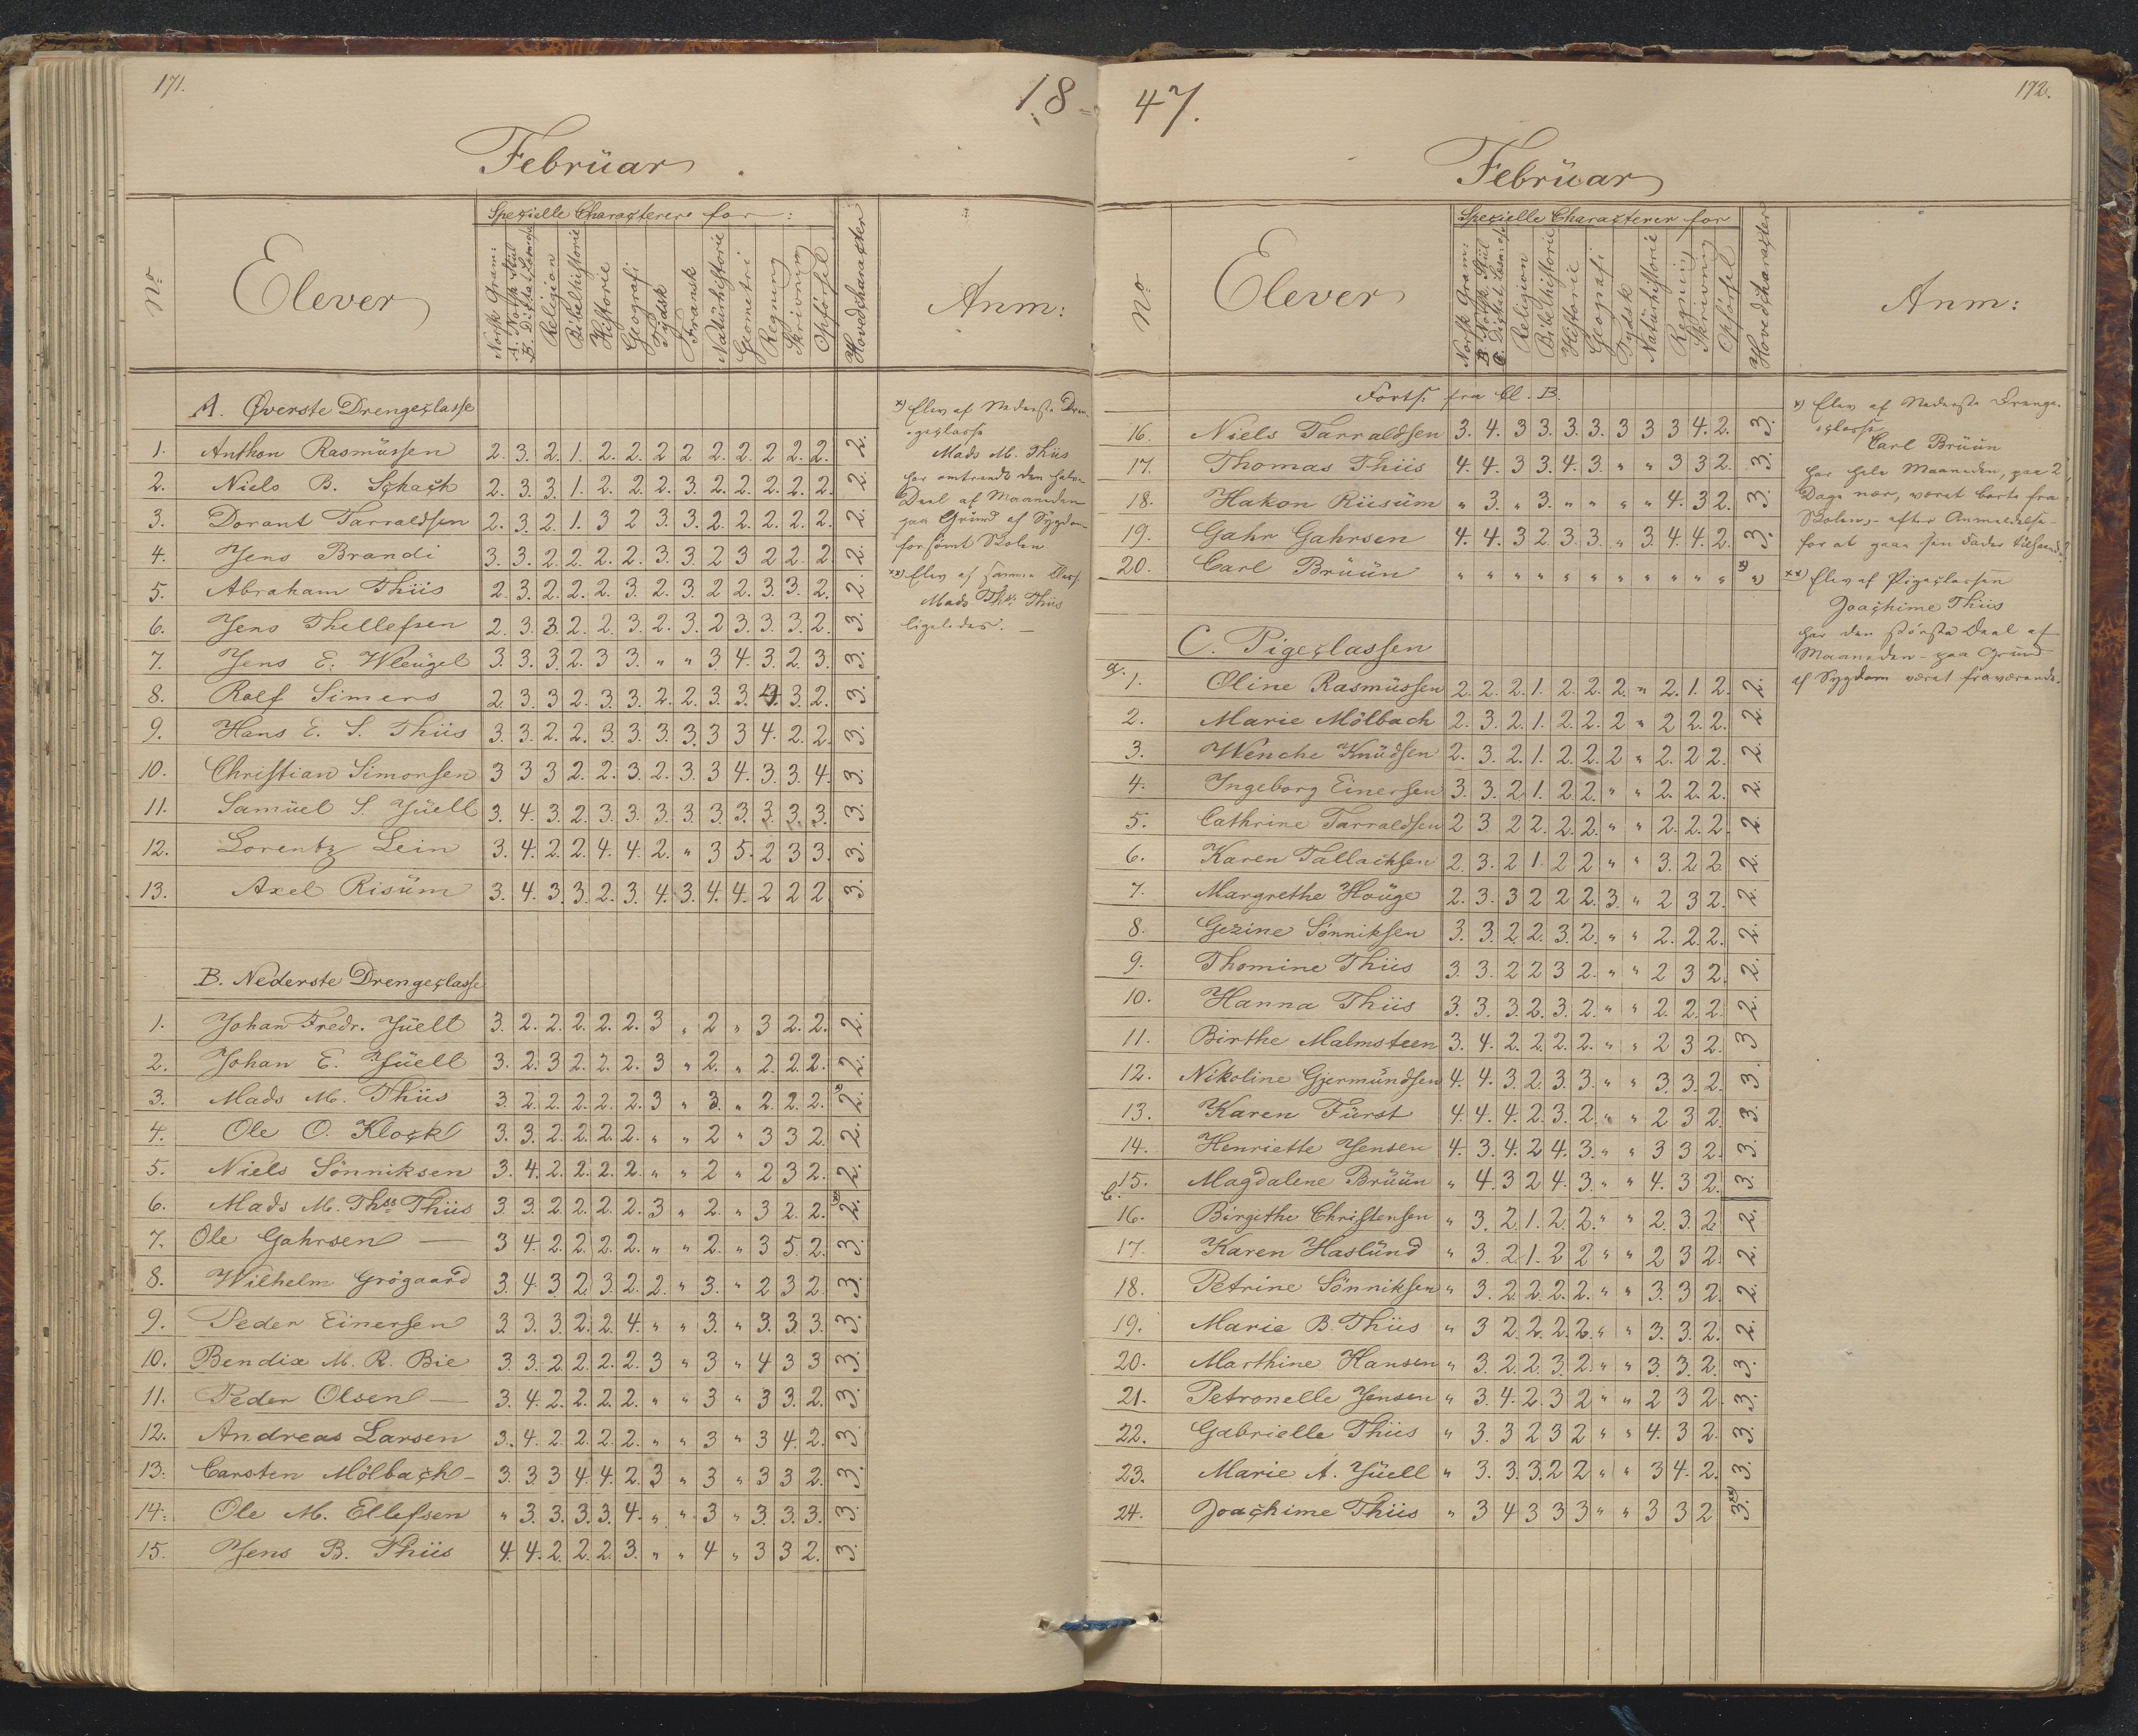 171.
18
Februar
No
Elever
Spezielle Characterer for:
Norsk Gram:
A. Norsk Stiil
B. Diktat, Læsnese
Religion
Bibelhistorie
Historie
Geografi
Tydsk
Fransk
Natürhistorie
Geometri
Regning
Skrivning
Opførsel
Hovedcharacter
Anm:
A. Øverste Drengeclasse
1. Anthon Rasmüssen 2. 3. 2. 1. 2. 2. 2 2 2. 2. 2 2. 2. 2.
2. Niels B. Schach 2. 3. 3. 1. 2. 2. 2. 3. 2. 2. 2. 2. 2. 2.
3. Dorant Tarraldsen 2. 3. 2. 1. 3 2 3. 3. 2. 2. 2. 2. 2. 2.
4. Jens Brandi 3. 3. 2. 2. 2. 2. 3. 3. 2 3 2. 2. 2. 2.
5. Abraham Thiis 2. 3. 2. 2. 2. 3. 2. 3. 2 2. 3. 3. 2. 2.
6. Jens Thellefsen 2. 3. 3. 2. 2. 3. 2. 3. 2 3. 3. 3. 2. 3.
7. Jens E. Wleügel 3. 3. 3. 2. 3 3. " " 3. 4. 3. 2. 3. 3.
8. Rolf Simers 2. 3. 3 2. 3. 3. 2. 2. 3. 3. 4. 3. 2. 3.
9. Hans E. S. Thiis 3. 3. 2. 2. 3. 3. 3. 3. 3 3 4. 2. 2. 3.
10. Christian Simonsen 3 3 3 2. 2. 3. 2. 3. 3 4. 3. 3. 4. 3.
11. Samüel S. Jüell 3. 4. 3. 2. 3. 3. 3. 3. 3. 3. 3. 3. 3. 3.
12. Lorentz Lein 3. 4. 2. 2. 4. 4. 2. " 3 5. 2 3 3. 3.
13. Axel Risüm 3. 4. 3. 3. 2. 3. 4. 3. 4. 4. 2 2 2. 3.
B. Nederste Drengeclasse
1. Johan Fredr. Jüell 3. 2. 2. 2. 2. 2. 3 " 2 " 3 2. 2. 2.
2. Johan E. Jüell 3. 2. 3 2. 2. 2. 3 " 2. " 2. 2. 2. 2.
3. Mads M. Thiis 3. 2. 2. 2. 2. 2. 3 " 3. " 2. 2. 2. 2. x)
4. Ole O. Klock 3. 3. 2. 2. 2. 2. " " 2 " 3 3 2. 2.
5. Niels Sönniksen 3. 4. 2. 2. 2. 2. " " 2 " 2 3 2. 2.
6. Mads M. Thss Thiis 3. 3. 2. 2. 2. 2. 3 " 2. " 3 2. 2. 2. xx)
7. Ole Gahrsen — 3 4. 2. 2. 2. 2. " " 2. " 3 5. 2. 3.
8. Wilhelm Grögaard 3. 4. 3. 2. 3. 2. 2. " 3. " 2 3 2. 3.
9. Peder Einersen 3 3. 3. 2. 2. 4. " " 3. " 3. 3. 3. 3.
10. Bendix M. R. Bie 3. 3. 2. 2. 2. 2. 3 " 3 " 4 3 3 3.
11. Peder Olsen — 3. 4. 2. 2. 2. 2. " " 3 " 3 3. 2. 3.
12. Andreas Larsen 3. 4. 2. 2. 2. 2. " " 3 " 3 4. 2. 3.
13. Carsten Mölbach — 3. 3. 3 4. 4. 2. 3 " 3 " 3 3 2. 3.
14. Ole M. Ellefsen " 3. 3. 3. 3. 4. " " 3 " 3. 3. 3. 3.
15. Jens B. Thiis 4. 4. 2. 2. 2. 3. " " 4 " 3 3 2. 3.
x) Elev af Nederste Dren-
geclasse
Mads M. Thiis
har omtrendt den halve
Deel af Maaneden
paa Grund af Sygdom
forsömt Skolen
xx) Elev af samme Classe
Mads Thss. Thiis
ligeledes. —
47.
172.
Februar
No
Elever
Spezielle Characterer for
Norsk Gram:
B. Norsk Stiil
C. Diktat, Læsnese
Religion
Bibelhistorie
Historie
Geografi
Tydsk
Natürhistorie
Regning
Skrivning
Opførsel
Hovedcharacter
Anm:
Forts. fra Cl. B.
16. Niels Tarraldsen 3. 4. 3 3. 3. 3. 3 3 3 4. 2. 3.
17. Thomas Thiis 4. 4. 3 3. 4. 3. " " 3 3 2. 3.
18. Hakon Riisüm " 3. " 3. " " " " 4. 3 2. 3.
19. Gahr Gahrsen 4. 4. 3 2. 3. 3. " 3. 4. 4. 2. 3.
20. Carl Brüün " " " " " " " " " " " x) "
C. Pigeclassen
a. 1. Oline Rasmüssen 2. 2. 2. 1. 2. 2. 2. " 2. 1. 2. 2.
2. Marie Mölbach 2. 3. 2. 1. 2. 2. 2 " 2 2. 2. 2.
3. Wenche Knüdsen 2. 3. 2. 1. 2. 2. 2 " 2. 2 2. 2.
4. Ingeborg Einersen 3. 3. 2. 1. 2 2. " " 2. 2. 2. 2.
5. Cathrine Tarraldsen 2 3 2 2. 2. 2. " " 2. 2. 2. 2.
6. Karen Tallachsen 2. 3. 2 1. 2 2 " " 3. 2 2. 2.
7. Margrethe Houge 2. 3. 3 2 2 2. 3. " 2 3 2. 2.
8. Gezine Sönniksen 3. 3. 2. 2. 3. 2. " " 2. 2. 2. 2.
9. Thomine Thiis 3. 3. 2 2 3 2. " " 2 3 2. 2.
10. Hanna Thiis 3. 3. 3. 2. 3. 2. " " 2. 2. 2. 2.
11. Birthe Malmsteen 3. 4. 2. 2. 2. 2. " " 2 3 2. 3
12. Nikoline Gjermündsen 4. 4. 3. 2. 3. 3. " " 3. 3. 2. 3.
13. Karen Fürst 4. 4. 4. 2. 3. 2. " " 2 3 2. 3.
14. Henriette Jensen 4. 3. 4. 2 4. 3. " " 3 3 2. 3.
15. Magdalene Brüün " 4. 3 2 4. 3. " " 4. 3 2. 3.
b. 16. Birgithe Christensen " 3. 2. 1. 2. 2. " " 2. 3. 2. 2.
17. Karen Haslünd " 3. 2. 1. 2 2 " " 2 3 2. 2.
18. Petrine Sönniksen " 3. 2. 2. 2. 2. " " 3. 3 2. 2.
19. Marie B. Thiis " 3 2. 2. 2. 2. " " 3. 3. 2. 2.
20. Marthine Hansen " 3. 2. 2. 3. 2. " " 3. 3. 2. 3.
21. Petronelle Jensen " 3. 4. 2. 3 2 " " 2 3 2. 3.
22. Gabrielle Thiis " 3. 3 2 3 2 " " 4. 3 2. 3.
23. Marie A. Jüell " 3. 3. 3. 2 2 " " 3 4. 2. 3.
24. Joachime Thiis " 3 4 3 3 3 " " 3 3 2 3. xx)
x) Elev af Nederste Drenge-
classe
Carl Brüün
har hele Maaneden, paa 2
Dage nær, været borte fra
Skolen, – efter Anmeldelse –
for at gaae sin Fader tilhaande.
xx) Elev af Pigeclassen
Joachime Thiis
har den største Deel af
Maaneden – paa Grund
af Sygdom været fraværende.